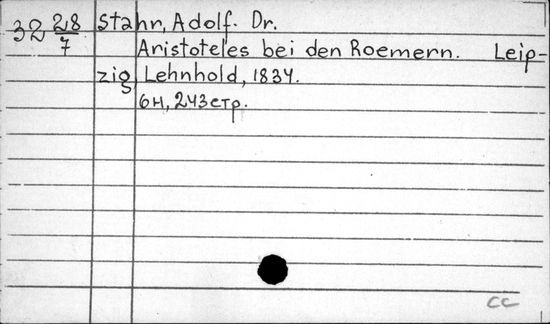 32 28/7 Stahr, Adolf. Dr.
Aristoteles bei den Roemern. Leip-
zig, Lehnhold, 1834.
6н, 243стр.
CC